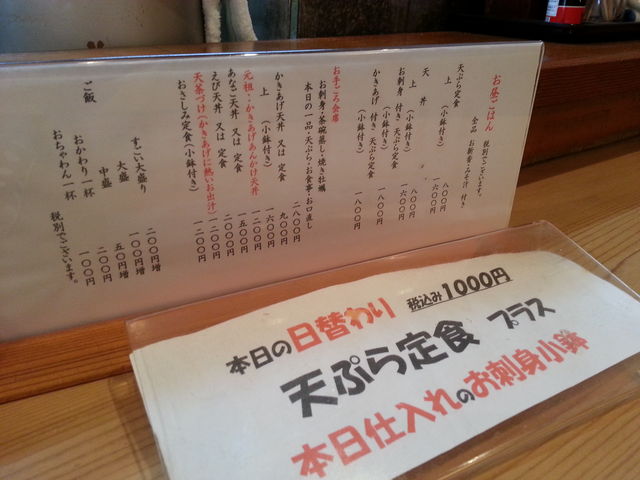 お昼ごはん 税別でございます。
全品 お新香・みそ汁 付き
天ぷら定食 八〇〇円
上 (小鉢付き) 一六〇〇円
天丼 八〇〇円
上 (小鉢付き) 一六〇〇円
お刺身 付き 天ぷら定食
(小鉢付き) 一八〇〇円
かきあげ 付き 天ぷら定食
(小鉢付き) 一八〇〇円
お手ごろ会席
お刺身・茶碗蒸し・焼き牡蠣
本日の一品・天ぷら・お食事・お口直し 二八〇〇円
かきあげ天丼 又は 定食 九〇〇円
上 (小鉢付き) 一六〇〇円
元祖・かきあげあんかけ天丼 一二〇〇円
あなご天丼 又は 定食 一五〇〇円
えび天丼 又は 定食 二〇〇〇円
天茶づけ(かきあげに熱いお出汁) 一二〇〇円
おさしみ定食(小鉢付き) 一二〇〇円
ご飯
すごい大盛り 二〇〇円増
大盛 一〇〇円増
中盛 五〇円増
おかわり一杯 二〇〇円
おちゃわん一杯 一〇〇円
税別でございます。
本日の日替わり 税込み1000円
天ぷら定食 プラス
本日仕入れのお刺身小鉢